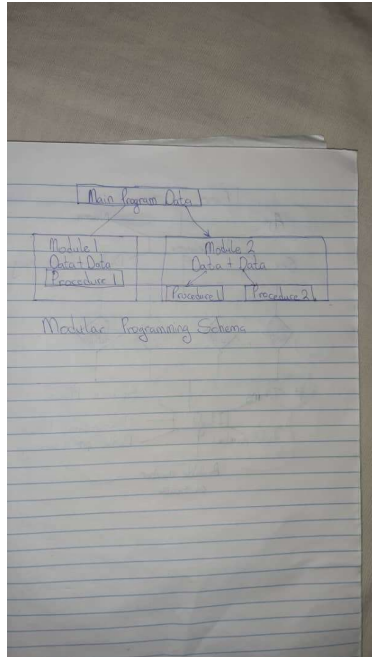 Main Program Data
Module 1
Data + Data
Procedure 1
Module 2
Data + Data
Procedure 1
Procedure 2
Modular Programming Schema